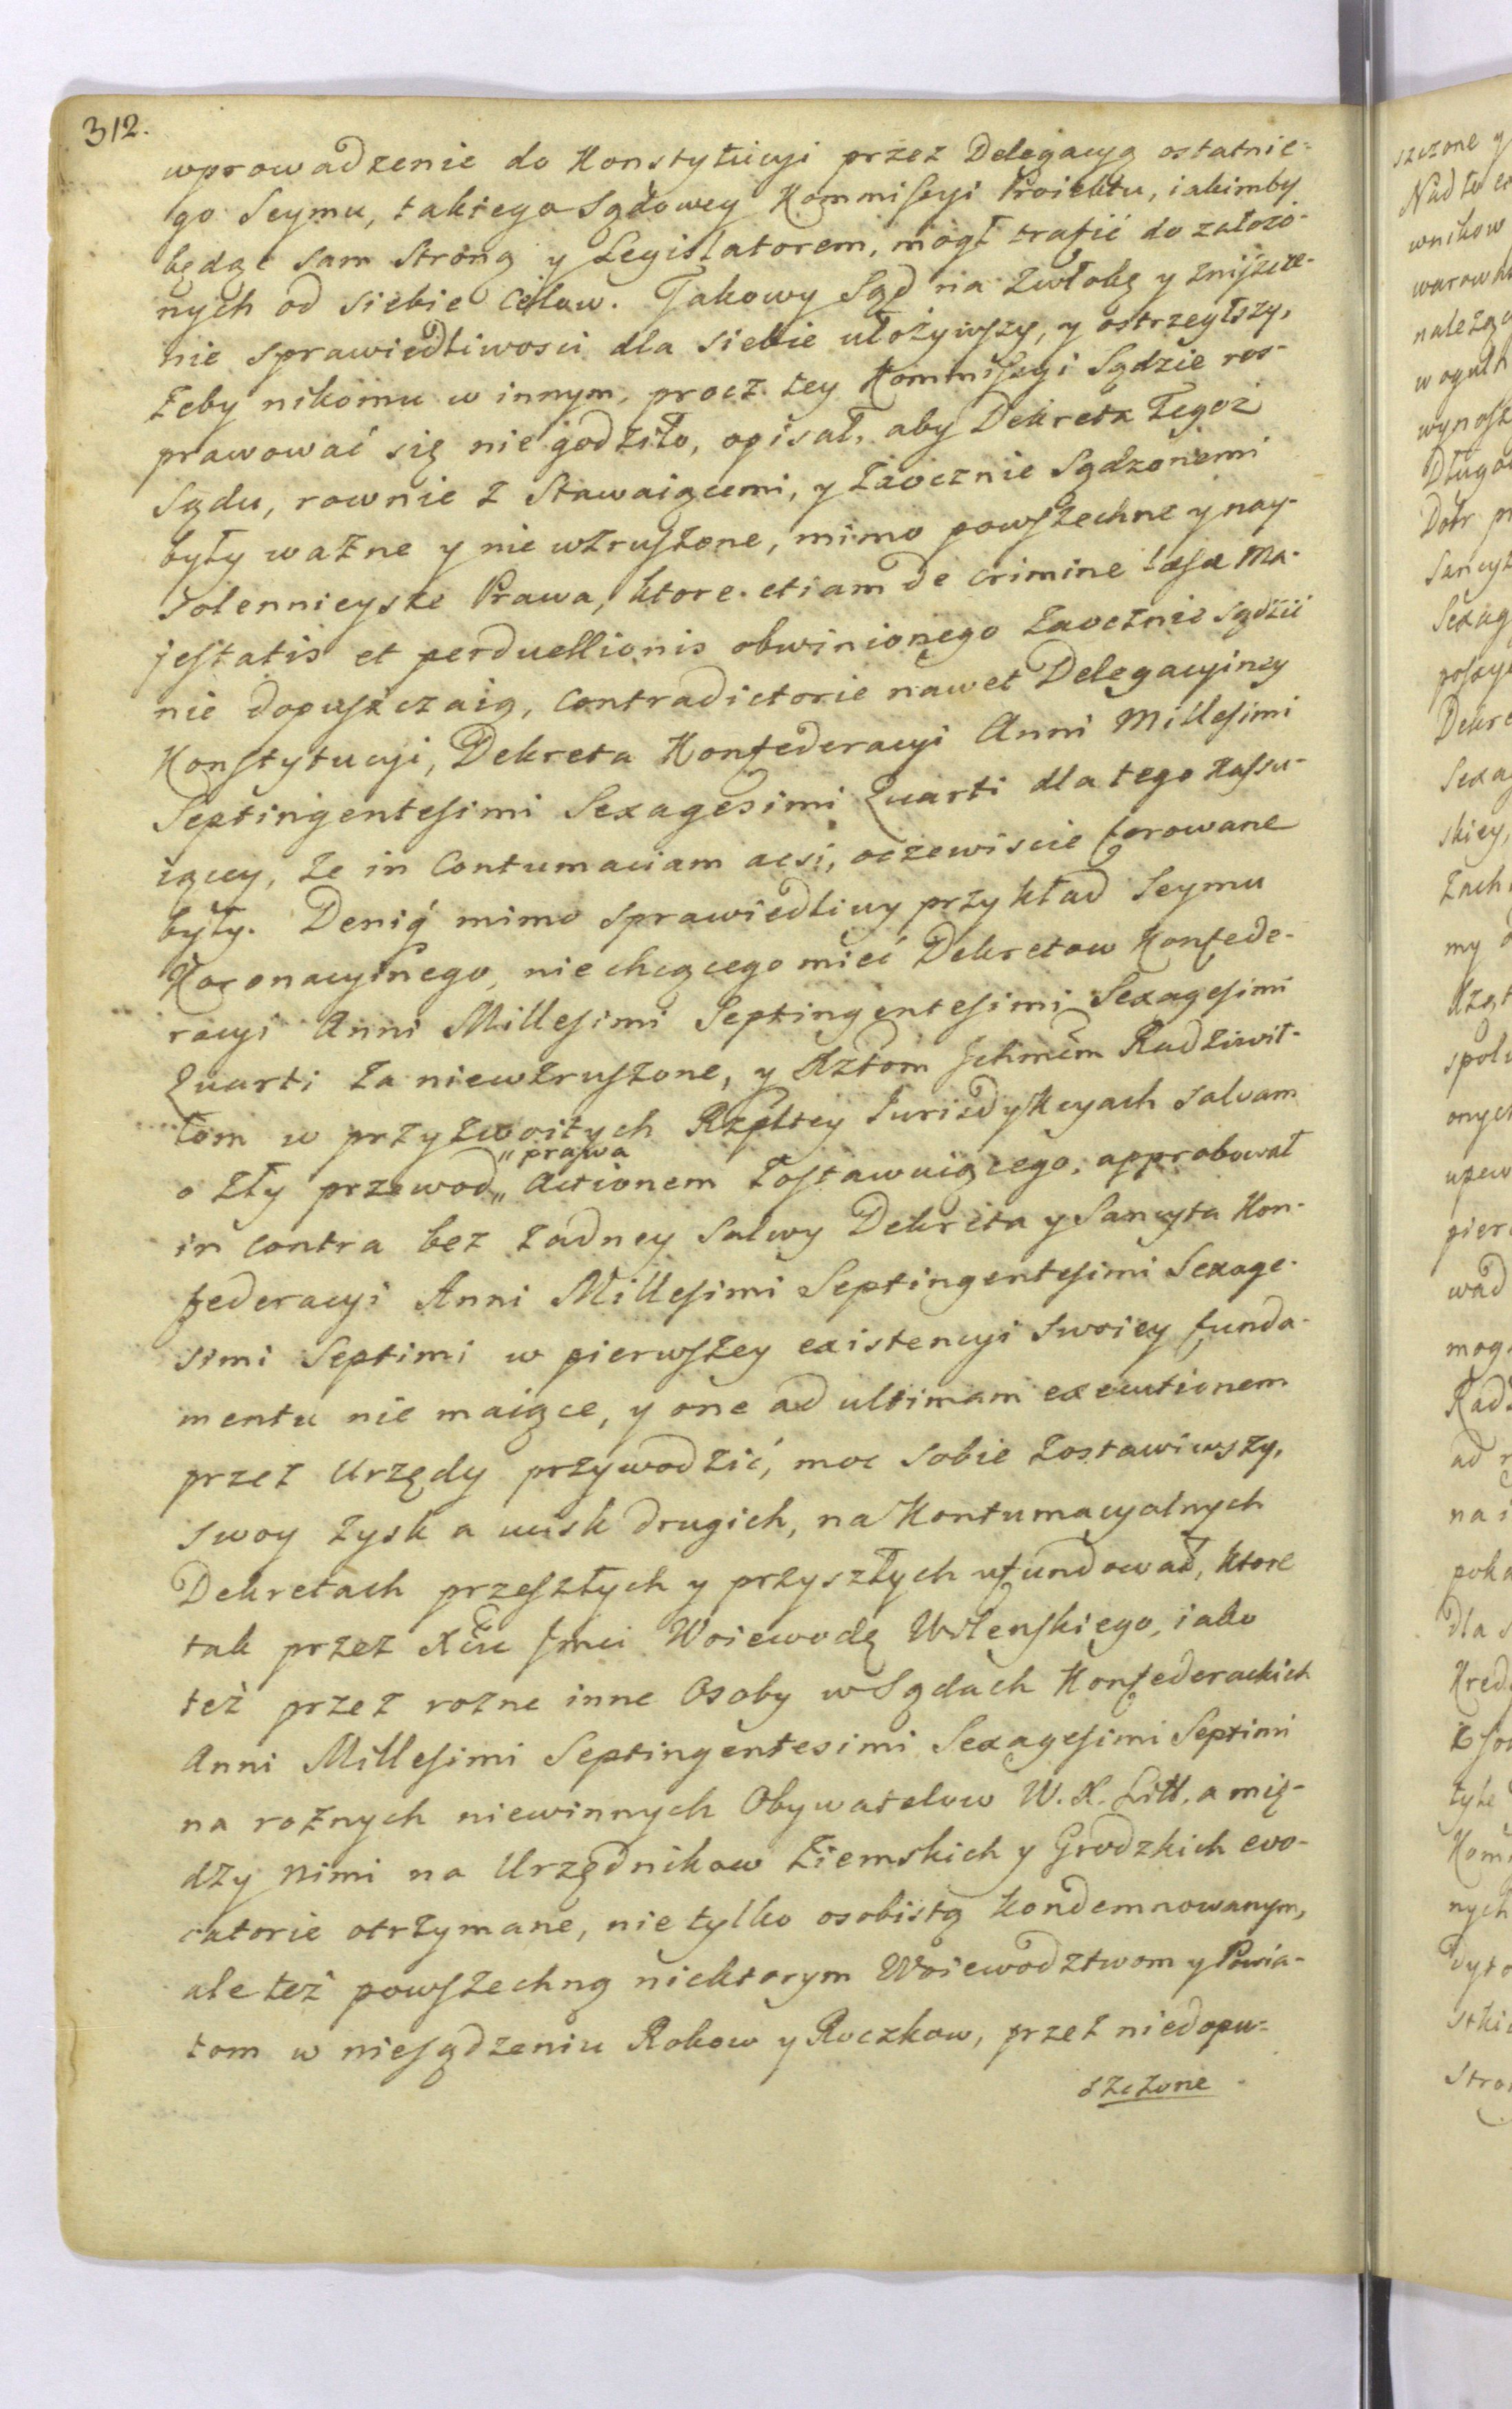 312.
wprowadzenie do Konstytucyi przez Delegacyą ostatnie-
go Seymu, takiego Sądowey Kommissyi Proiektu, iakimby
będąc sam stroną y Legislatorem, mogł trafić do założo-
nych od siebie celow. Takowy Sąd na zwłokę y zniszcze-
nie sprawiedliwosci dla siebie ułożywszy, y ostrzegłszy,
żeby nikomu w innym, procz tey Kommissyi Sądzie ros-
prawować się nie godziło, opisał, aby Dekreta tegoż
Sądu, rownie z Stawaiącemi, y zaocznie Sądzonemi
były ważne y niewzruszone, mimo powszechne y nay-
solennieysze Prawa, ktore etiam de crimine læsæ Ma-
jestatis et perduellionis obwinionego zaocznie sądzić
nie dopuszczaią, contradictorie nawet Delegacyiney
Konstytucyi, Dekreta Konfederacyi Anni Millesimi
Septingentesimi Sexagesimi Quarti dla tego kassu-
iącey, że in Contumaciam acsi, oczewiscie ferowane
były. Denią mimo sprawiedliwy przykład Seymu
Koronacyinego, niechcącego mieć Dekretow Konfede-
racyi Anni Millesimi Septingentesimi Sexagesimi
Quarti za niewzruszone, y Xztom Ichmcm Radziwił-
łom w przyzwoitych Rzpltey Jurisdykcyach salvam
o zły przewod „prawa„ Actionem zostawuiącego, approbował
in contra bez żadney Salwy Dekreta y Sancyta Kon-
federacyi Anni Millesimi Septingentesimi Sexage-
simi Septimi w pierwszey existencyi swoiey funda-
mentu nie maiące, y one ad ultimam executionem
przez Urzędy przywodzić, moc sobie zostawiwszy,
swoy zysk a ucisk drugich, na Kontumacyalnych
Dekretach przeszłych y przyszłych ufundował, ktore
tak przez Xcia Jmci Woiewodę Wilenskiego, iako
też przez rożne inne Osoby w Sądach Konfederackich
Anni Millesimi Septingentesimi Sexagesimi Septimi
na rożnych niewinnych Obywatelow W. X. Litt. a mię-
dzy nimi na Urzędnikow Ziemskich y Grodzkich evo-
catorie otrzymane, nie tylko osobistą kondemnowanym,
ale też powszechną niektorym Woiewodztwom y Powia-
tom w niesądzeniu Rokow y Roczkow, przez niedopu-
szczone